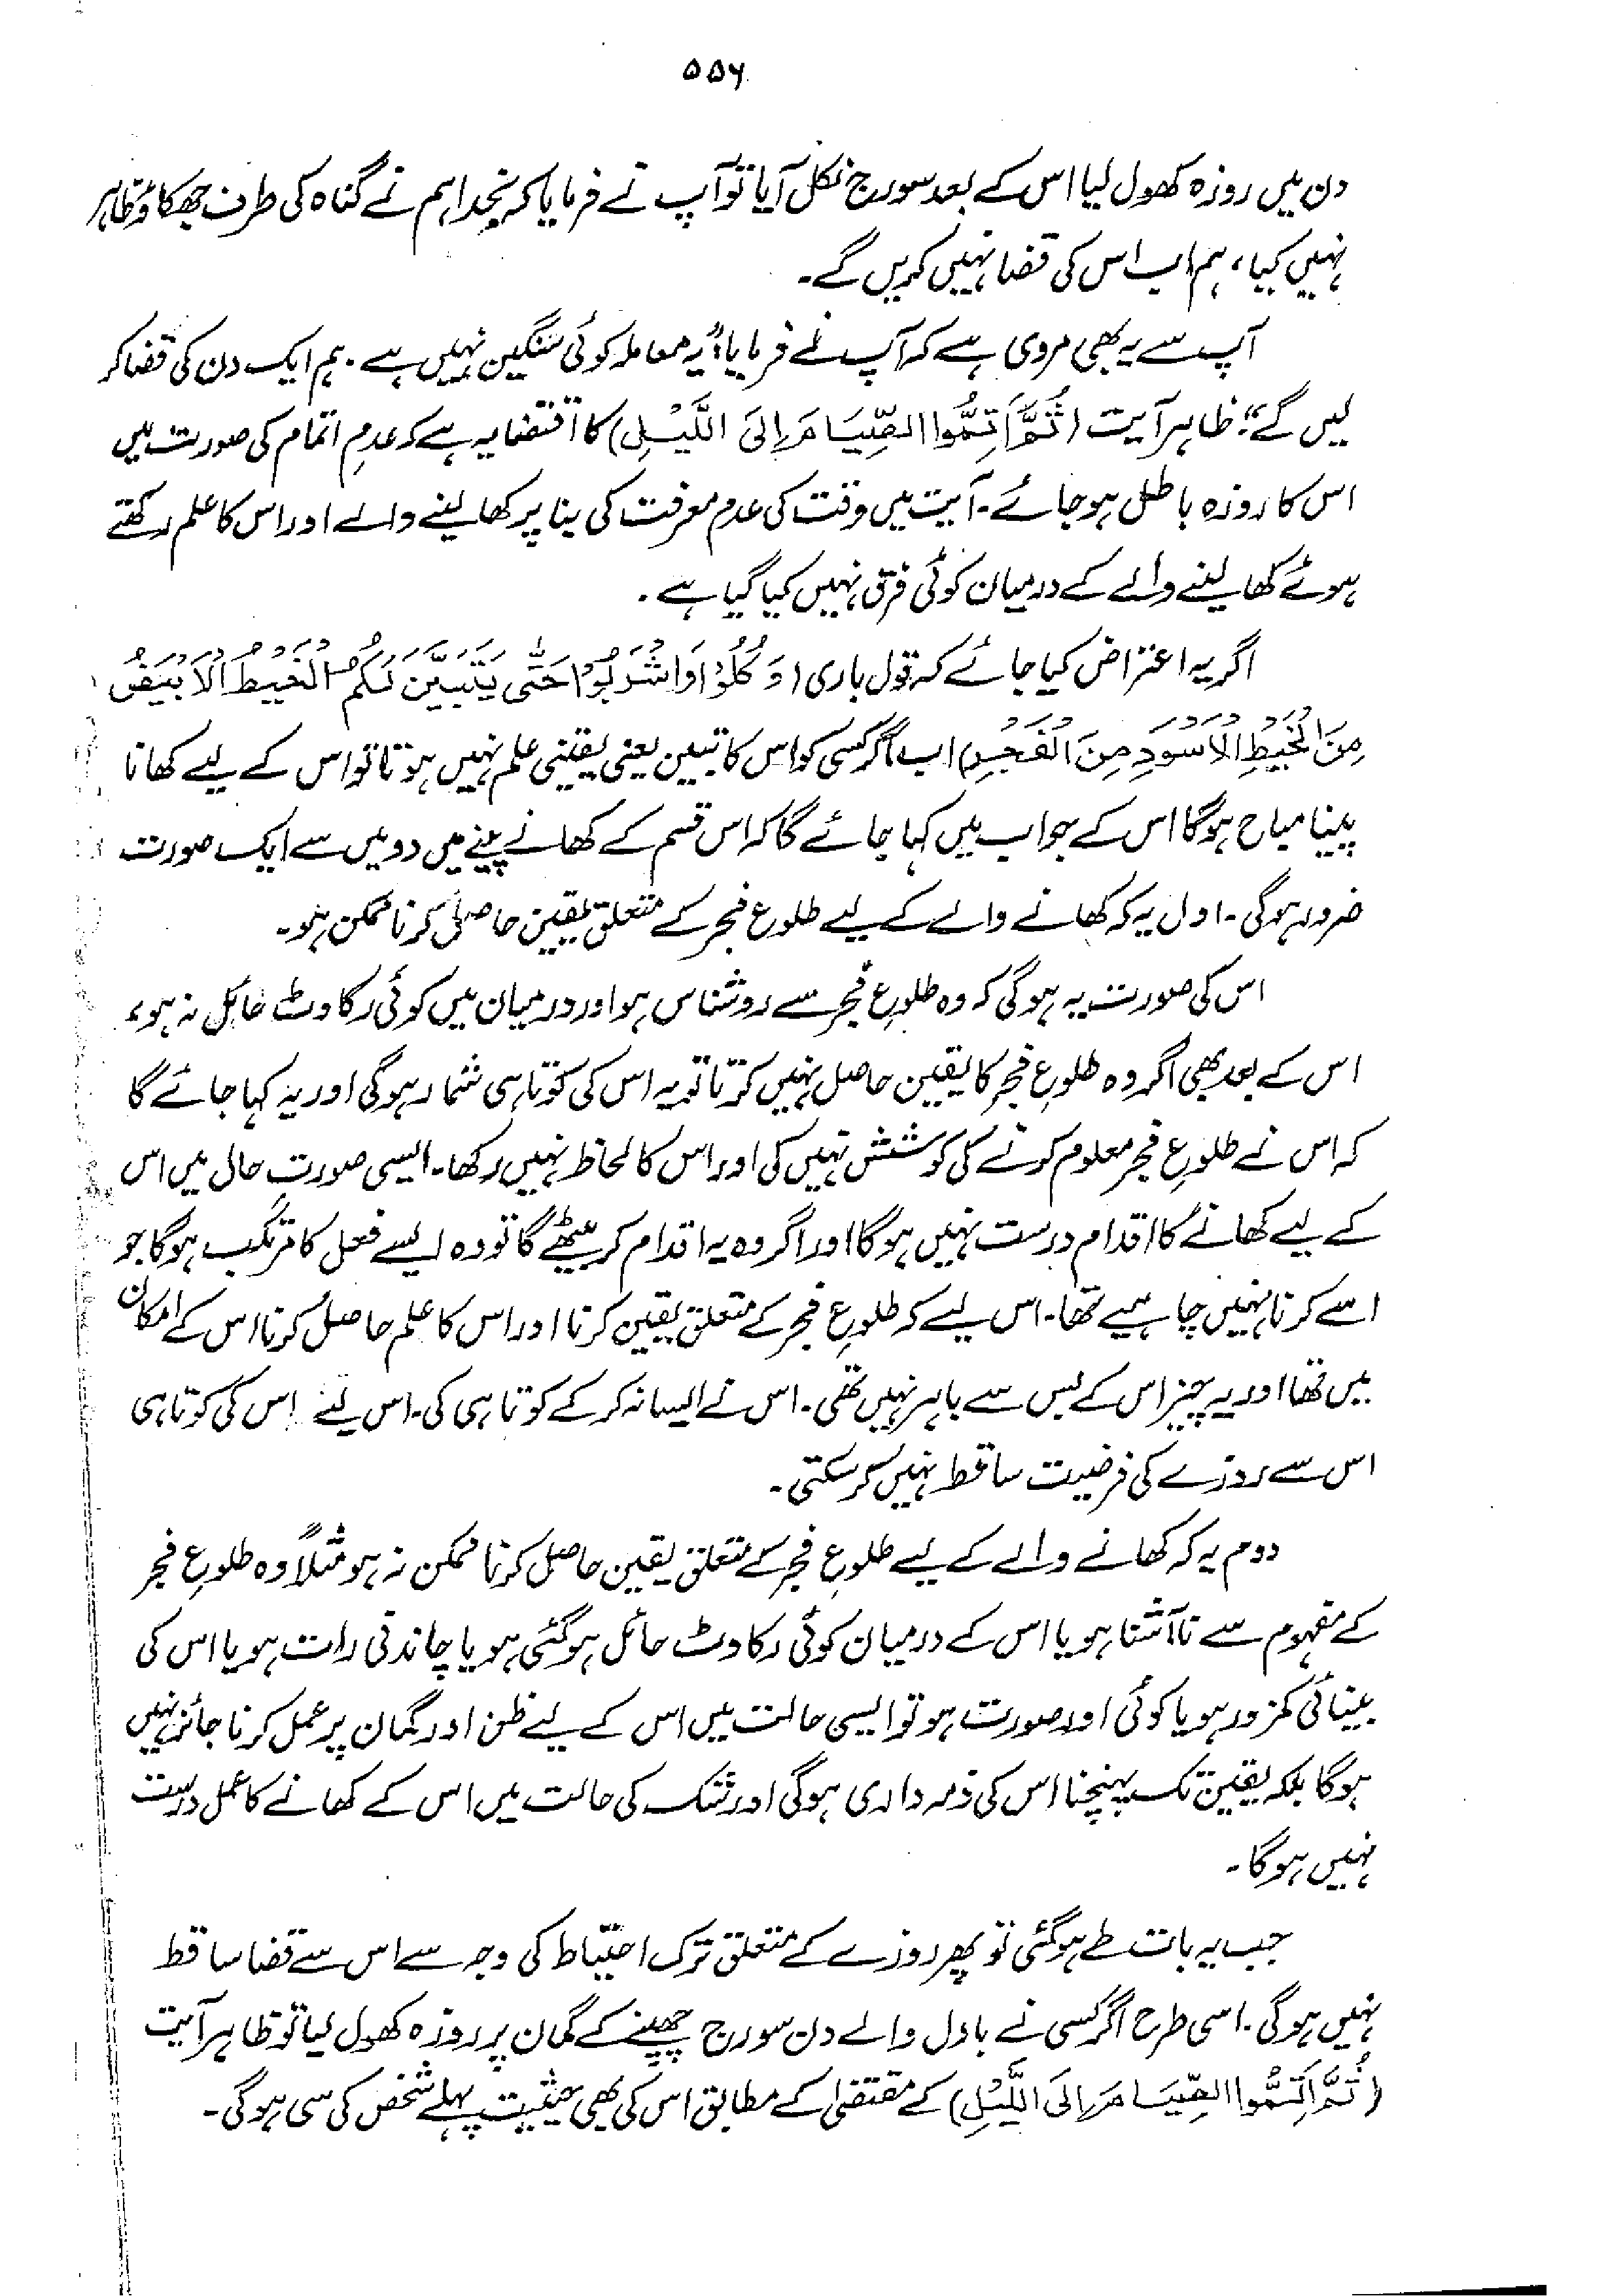 ۵۵۶
دن میں روزہ کھول لیا اس کے بعد سورج نکل آیا تو آپ نے فرمایا کہ بخدا ہم نے گناہ کی طرف جھکاؤ ظاہر
نہیں کیا، ہم اب اس کی قضا نہیں کریں گے۔
آپ سے یہ بھی مروی ہے کہ آپ نے فرمایا: "یہ معاملہ کوئی سنگین نہیں ہے۔ ہم ایک دن کی قضا کر
لیں گے"؛ ظاہر آیت (ثُمَّ اَتِمُّوا الصِّیَامَ اِلَی اللَّیْلِ) کا اقتضا یہ ہے کہ عدمِ اتمام کی صورت میں
اس کا روزہ باطل ہو جائے۔ آیت میں وقت کی عدم معرفت کی بنا پر کھا لینے والے اور اس کا علم رکھتے
ہوئے کھا لینے والے کے درمیان کوئی فرق نہیں کیا گیا ہے۔
اگر یہ اعتراض کیا جائے کہ قول باری (وَکُلُوْا وَاشْرَبُوْا حَتّٰی یَتَبَیَّنَ لَکُمُ الْخَیْطُ الْاَبْیَضُ
مِنَ الْخَیْطِ الْاَسْوَدِ مِنَ الْفَجْرِ) اب اگر کسی کو اس کا تبین یعنی یقینی علم نہیں ہوتا تو اس کے لیے کھانا
پینا مباح ہوگا اس کے جواب میں کہا جائے گا کہ اس قسم کے کھانے پینے میں دو میں سے ایک صورت
ضرور ہوگی۔ اول یہ کہ کھانے والے کے لیے طلوع فجر کے متعلق یقین حاصل کرنا ممکن ہو۔
اس کی صورت یہ ہوگی کہ وہ طلوعِ فجر سے روشناس ہو اور درمیان میں کوئی رکاوٹ حائل نہ ہو،
اس کے بعد بھی اگر وہ طلوعِ فجر کا یقین حاصل نہیں کرتا تو یہ اس کی کوتاہی شمار ہوگی اور یہ کہا جائے گا
کہ اس نے طلوعِ فجر معلوم کرنے کی کوشش نہیں کی اور اس کا لحاظ نہیں رکھا۔ ایسی صورتِ حال میں اس
کے لیے کھانے کا اقدام درست نہیں ہوگا اور اگر وہ یہ اقدام کر بیٹھے گا تو وہ ایسے فعل کا مرتکب ہوگا جو
اسے کرنا نہیں چاہیے تھا۔ اس لیے کہ طلوعِ فجر کے متعلق یقین کرنا اور اس کا علم حاصل کرنا اس کے امکان
میں تھا اور یہ چیز اس کے بس سے باہر نہیں تھی۔ اس نے ایسا نہ کر کے کوتاہی کی۔ اس لیے اس کی کوتاہی
اس سے روزے کی فرضیت ساقط نہیں کر سکتی۔
دوم یہ کہ کھانے والے کے لیے طلوعِ فجر کے متعلق یقین حاصل کرنا ممکن نہ ہو مثلاً وہ طلوعِ فجر
کے مفہوم سے ناآشنا ہو یا اس کے درمیان کوئی رکاوٹ حائل ہو گئی ہو یا چاندنی رات ہو یا اس کی
بینائی کمزور ہو یا کوئی اور صورت ہو تو ایسی حالت میں اس کے لیے ظن اور گمان پر عمل کرنا جائز نہیں
ہوگا بلکہ یقین تک پہنچنا اس کی ذمہ داری ہوگی اور شک کی حالت میں اس کے کھانے کا عمل درست
نہیں ہوگا۔
جب یہ بات طے ہو گئی تو پھر روزے کے متعلق ترک احتیاط کی وجہ سے اس سے قضا ساقط
نہیں ہوگی۔ اسی طرح اگر کسی نے بادل والے دن سورج چھپنے کے گمان پر روزہ کھول لیا تو ظاہر آیت
(ثُمَّ اَتِمُّوا الصِّیَامَ اِلَی اللَّیْلِ) کے مقتضیٰ کے مطابق اس کی بھی حیثیت پہلے شخص کی سی ہوگی۔